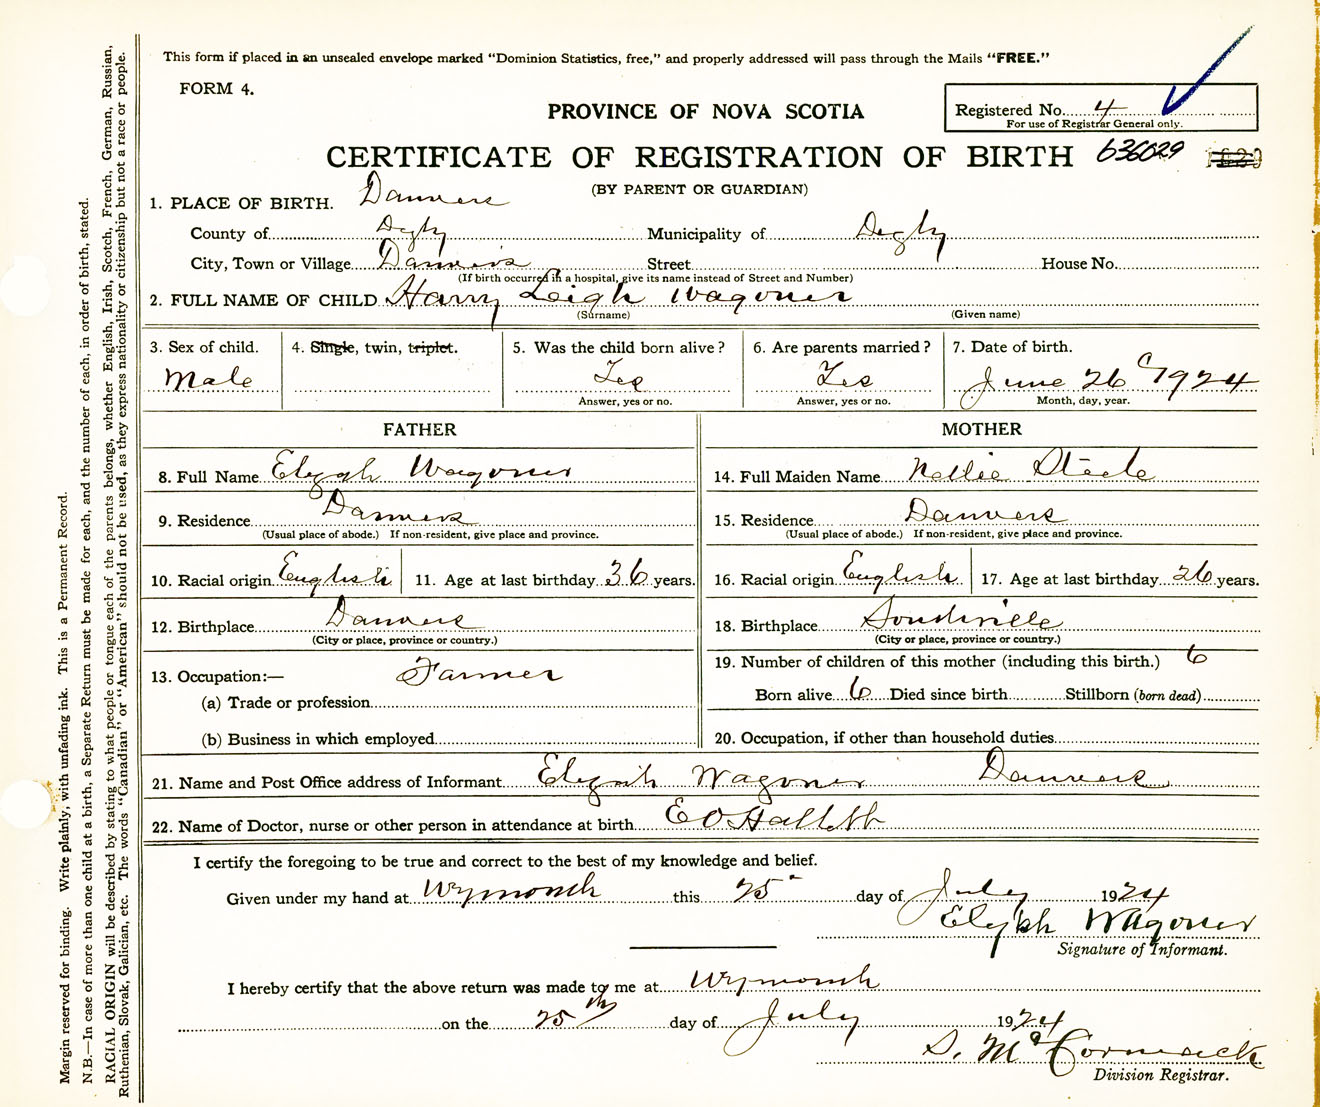 This form if placed in an unsealed envelope marked “Dominion Statistics, free,” and properly addressed will pass through the Mails “FREE.”
FORM 4.
PROVINCE OF NOVA SCOTIA
Registered No. 4
For use of Registrar General only.
CERTIFICATE OF REGISTRATION OF BIRTH 636029
(BY PARENT OR GUARDIAN)
1. PLACE OF BIRTH. Danvers
County of Digby Municipality of Digby
City, Town or Village Danvers Street House No.
(If birth occurred in a hospital, give its name instead of Street and Number)
2. FULL NAME OF CHILD Harry Leigh Wagoner
(Surname) (Given name)
3. Sex of child. 4. Single, twin, triplet. 5. Was the child born alive? 6. Are parents married? 7. Date of birth.
Male Yes Yes June 26 1924
Answer, yes or no. Answer, yes or no. Month, day, year.
FATHER MOTHER
8. Full Name Elijah Wagoner 14. Full Maiden Name Nellie Steele
9. Residence Danvers 15. Residence Danvers
(Usual place of abode.) If non-resident, give place and province. (Usual place of abode.) If non-resident, give place and province.
10. Racial origin English 11. Age at last birthday 36 years. 16. Racial origin English 17. Age at last birthday 26 years.
12. Birthplace Danvers 18. Birthplace
(City or place, province or country.) (City or place, province or country.)
13. Occupation:— Farmer 19. Number of children of this mother (including this birth.) 6
(a) Trade or profession Born alive 6 Died since birth Stillborn (born dead)
(b) Business in which employed 20. Occupation, if other than household duties
21. Name and Post Office address of Informant Elijah Wagoner Danvers
22. Name of Doctor, nurse or other person in attendance at birth E O Hallett
I certify the foregoing to be true and correct to the best of my knowledge and belief.
Given under my hand at Weymouth this 25 day of July 1924
Elijah Wagoner
Signature of Informant.
I hereby certify that the above return was made to me at Weymouth
on the 25th day of July 1924
S. McCormack
Division Registrar.
Margin reserved for binding. Write plainly, with unfading ink. This is a Permanent Record.
N.B.—In case of more than one child at a birth, a Separate Return must be made for each, and the number of each, in order of birth, stated.
RACIAL ORIGIN will be described by stating to what people or tongue each of the parents belongs, whether English, Irish, Scotch, French, German, Russian,
Ruthenian, Slovak, Galician, etc. The words “Canadian” or “American” should not be used, as they express nationality or citizenship but not a race or people.